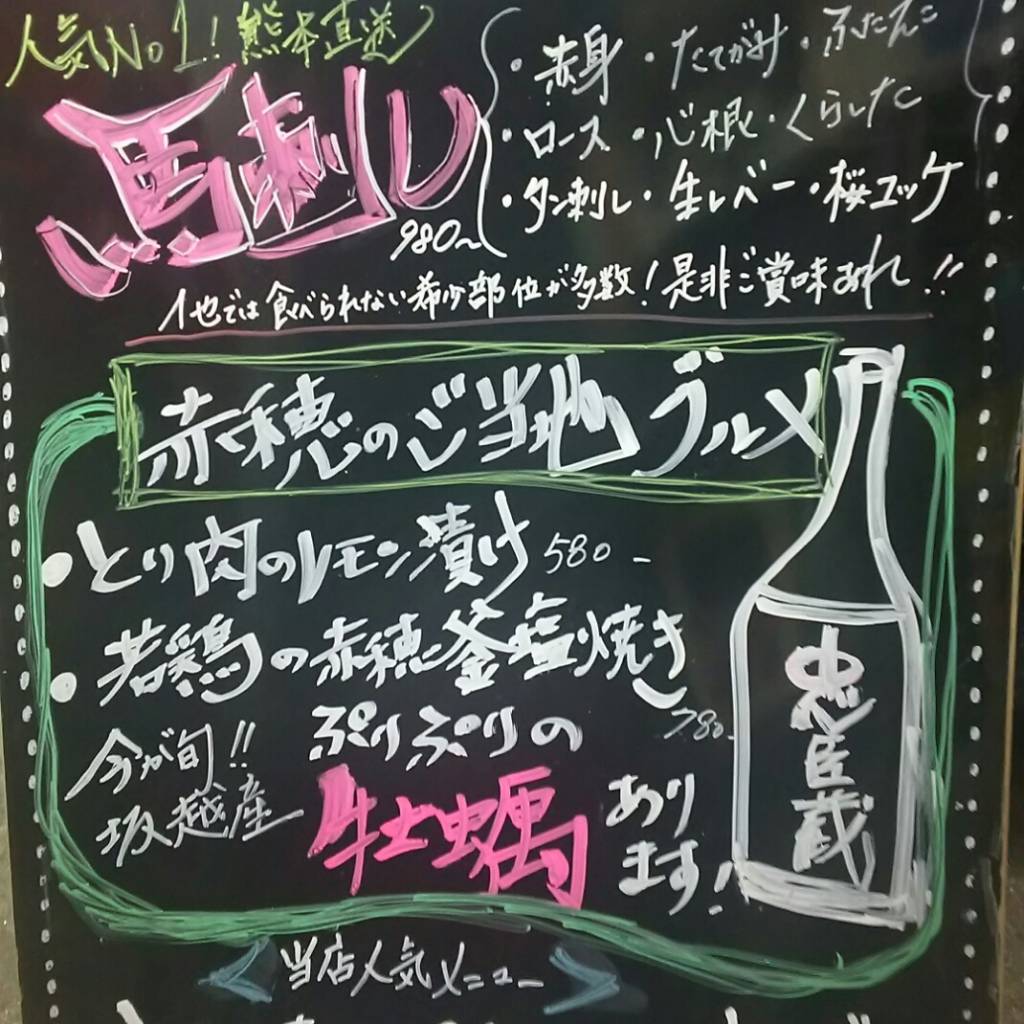 人気No1!熊本直送
馬刺し
980〜
・赤身・たてがみ・ふたえご
・ロース・心根・くらした
・タン刺し・生レバー・桜ユッケ
他では食べられない希少部位が多数!是非ご賞味あれ!!
赤穂のご当地グルメ
・とり肉のレモン漬け 580-
・若鶏の赤穂釜塩焼き
780-
今が旬!!
坂越産
ぷりぷりの
牡蠣
あり
ます!
忠臣蔵
当店人気メニュー